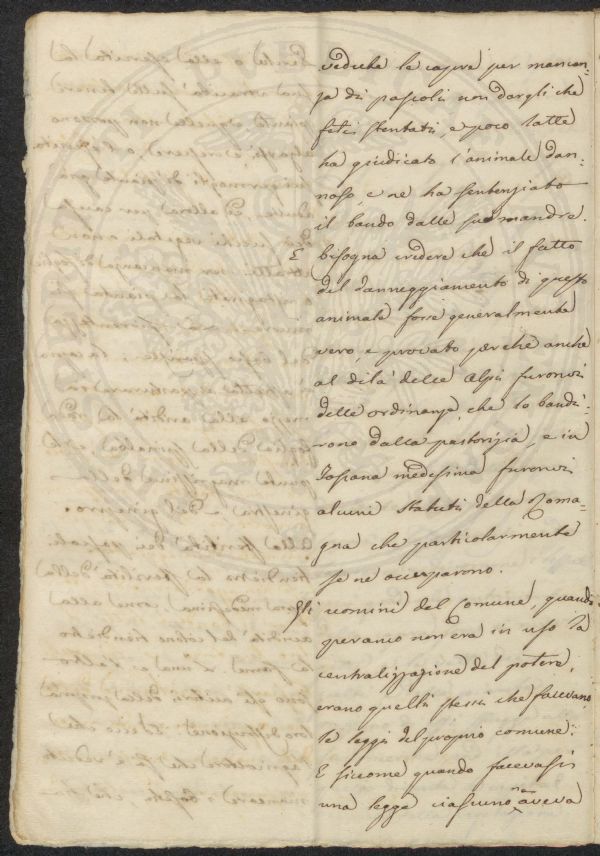 vediche le capre per mancan-
za di pascoli non dargli che
feti stentati, e poco latte
ha giudicato l'animale dan-
noso, e ne ha sentenziato
il bando dalle sue mandre.
E bisogna credere che il fatto
del danneggiamento di questo
animale fosse generalmente
vero, e provato perche anche
al di là delle Alpi furonvi
delle ordinanze, che lo bandi-
rono dalla pastorizia, e in
Toscana medesima furonvi
alcuni Statuti della Roma-
gna che particolarmente
se ne occuparono.
Gli uomini del Comune, quando
per anco non era in uso la
centralizzazione del potere,
erano quelli stessi che facevano
le leggi del proprio comune:
E siccome quando facevasi
una legge ciascuno n'aveva